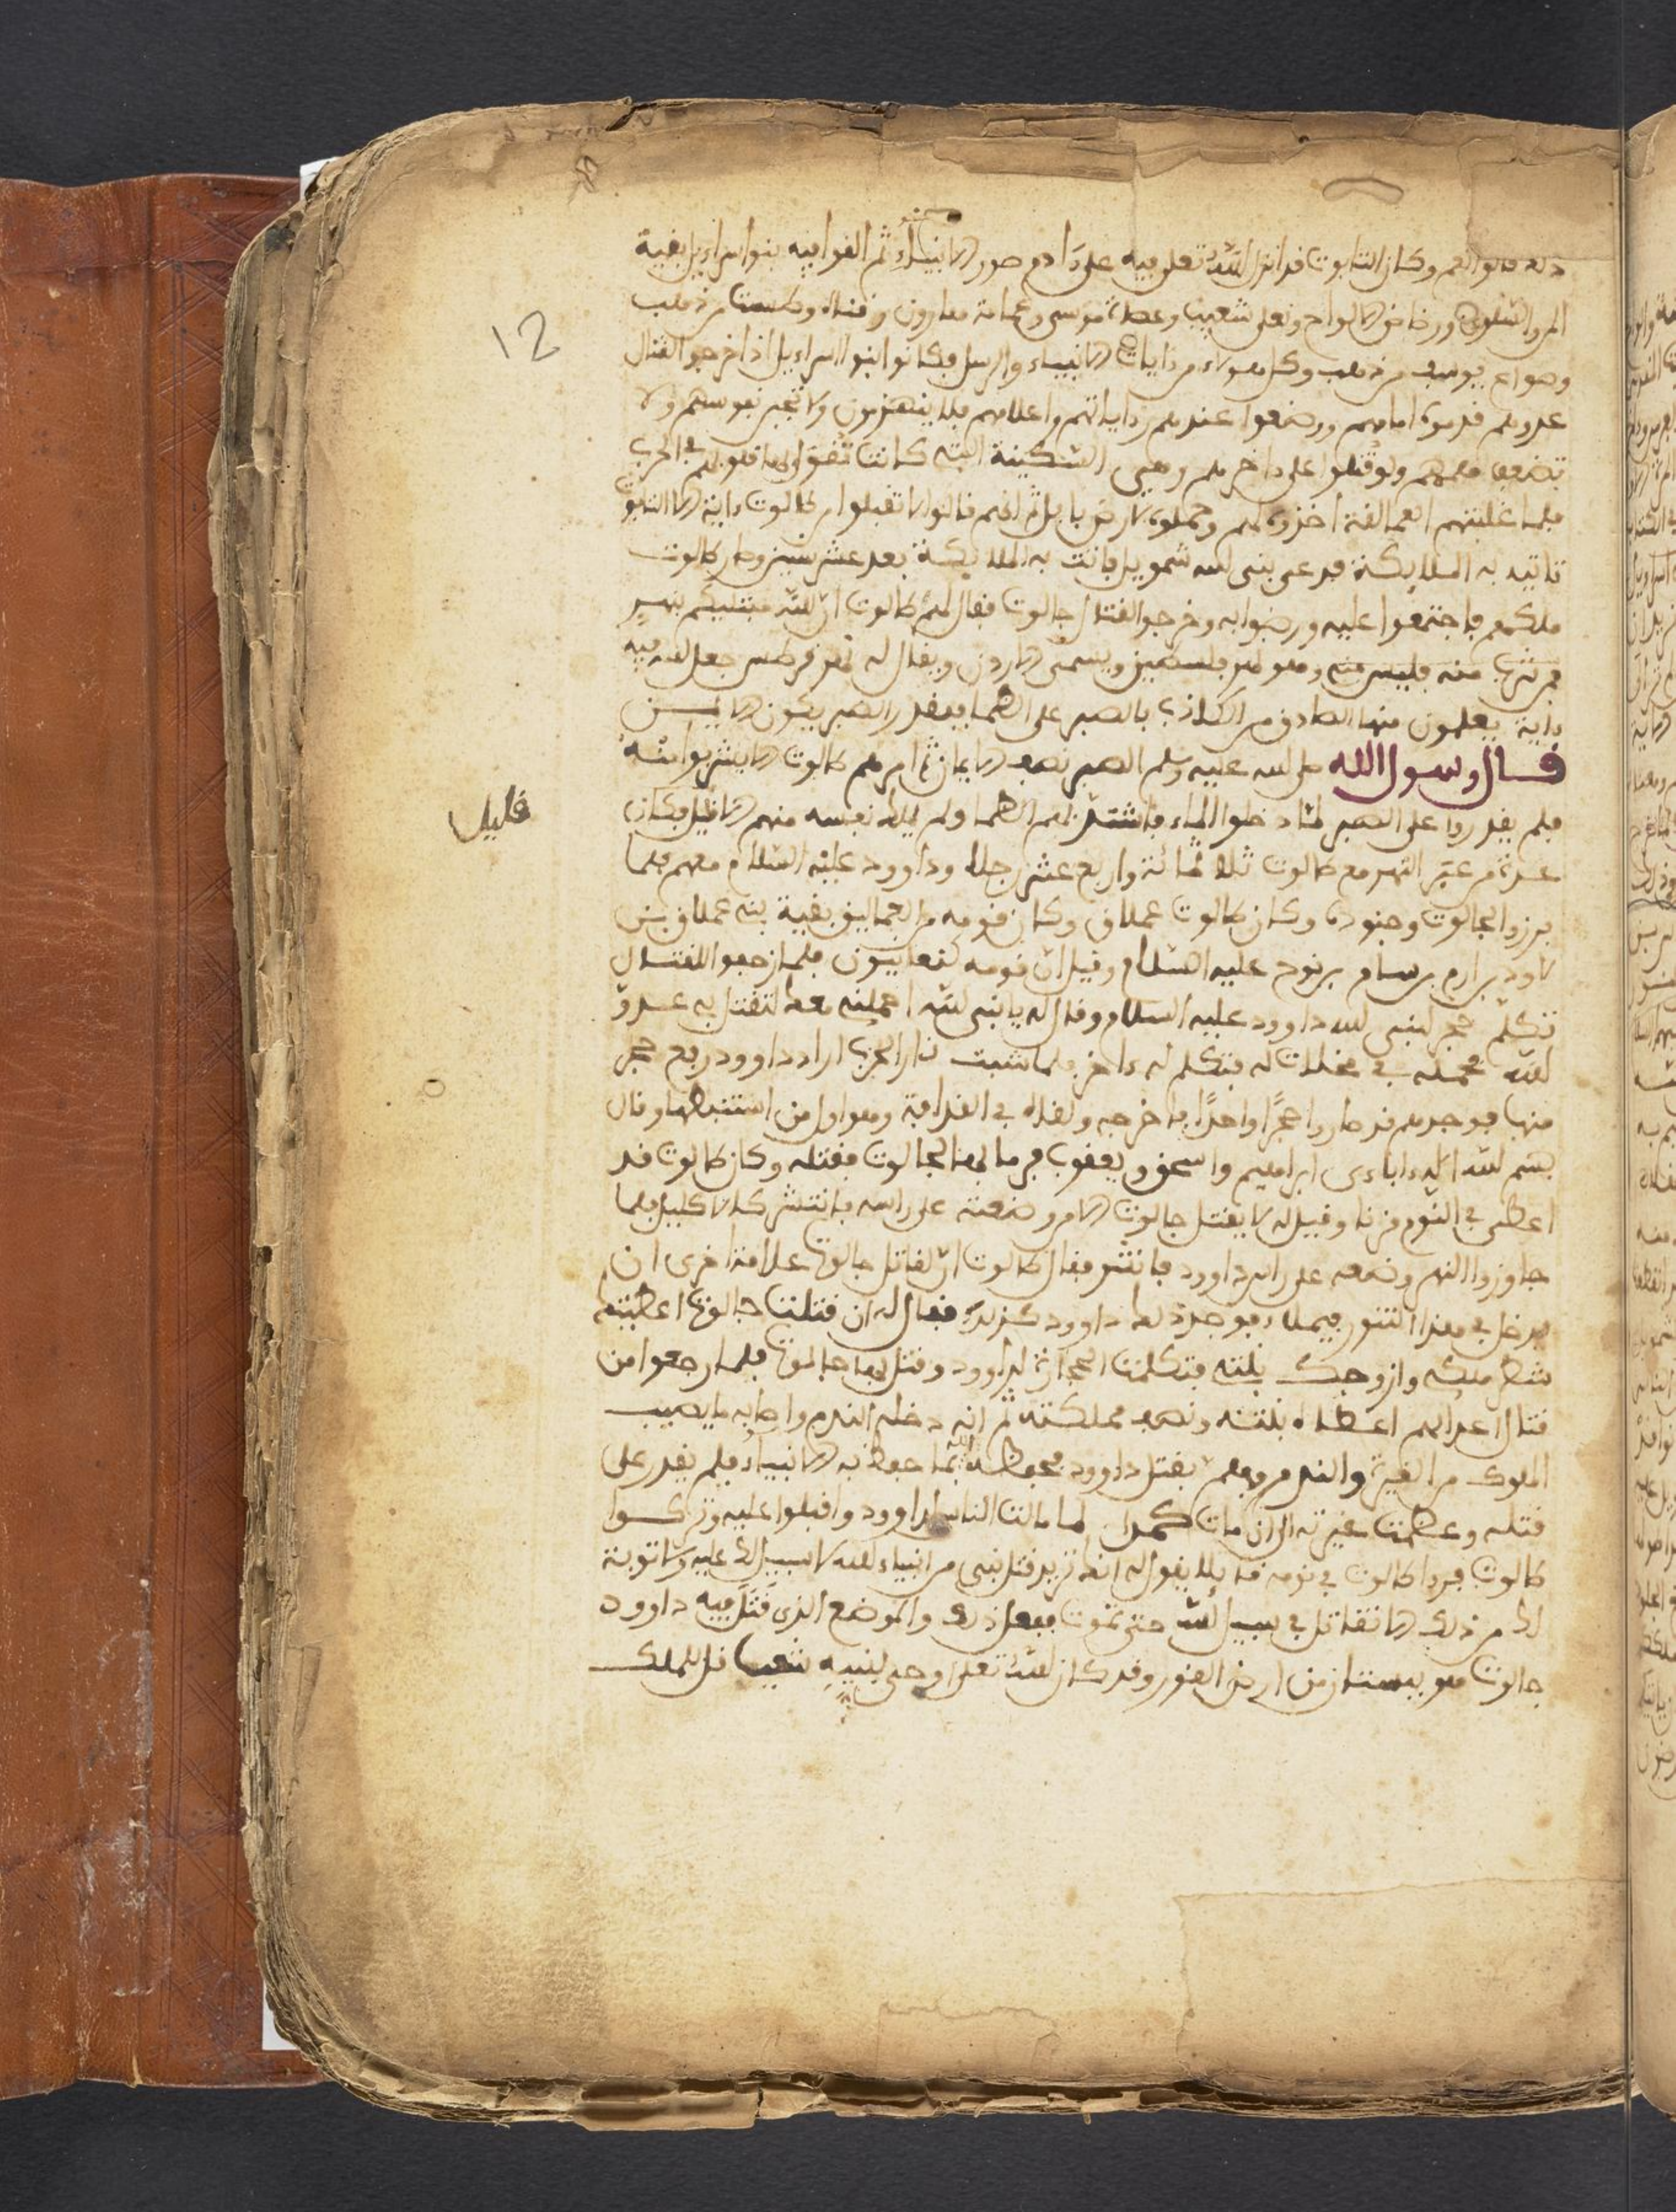 ذلك قالوا نعم وكان التابوت قد انزل الله تعلى فيه على ءادم صور الانبياء ثم القوا فيه بنوا اسراءيل بقية
المن والسلوى ورضاض الالواح ونعلي شعيب وعصاة موسى وعمامة هارون وقناه وطست من ذهب
وصواع يوسف من ذهب وكل هولاء من ءايات الانبياء والرسل فكانوا بنوا اسراءيل اذا خرجوا لقتال
عدوهم قدموه امامهم ووضعوا عندهم راياتهم واعلامهم فلا ينهزمون ولا تجبن نفوسهم ولا
تضعف هممهم ولو قتلوا على ءاخرهم وهي السكينة التي كانت تقوى بها قلوبهم في الحرب
فلما غلبتهم العمالقة اخذوه لهم وحملوه لارض بابل ثم انهم قالوا لا تقبلوا من طالوت ءاية الا التابوت
تاتيه به الملايكة فدعى بنى الله شمويل فاتت به الملايكة بعد عشر سنين وصار طالوت
ملكهم فاجتمعوا عليه ورضوا به وخرجوا لقتال جالوت فقال لهم طالوت ان الله مبتليكم بنهر
فمن شرب منه فليس منى وهو نهر فلسطين ويسمى الاردن ويقال له نهر قرطس جعل الله فيه
ءاية يعلمون منها الصادق من الكاذب بالصبر على الظما فبقدر الصبر يكون الايمن
قال رسول الله صلى الله عليه وسلم الصبر نصف الايمان ثم امرهم طالوت الا يشربوا منه
فلم يقدروا على الصبر لما دخلوا الماء فاشتد بهم الظما ولم يملك نفسه منهم الا قليل فكان
قليل
عدة من عبر النهر مع طالوت ثلاثمائة واربع عشر رجلا وداوود عليه السلام معهم فلما
برزوا لجالوت وجنوده وكان طالوت عملاق وكان قومه من العماليق بقية بنى عملاق بن
لاود بن ارم بن سام بن نوح عليه السلام وقيل ان قومه كنعانيون فلما زحفوا للقتال
تكلم حجر لنبي الله داوود عليه السلام وقال له يا نبى الله احملنى معك لتقتل به عدو
الله فحمله في مخلات له فتكلم له ءاخر فلما شبت نار الحرب اراد داوود ربع حجر
منها فوجدهم قد صاروا حجرا واحدا فاخرجه ولقاه في القذافة وهو اول من استنبطها وقال
بسم الله اله ءاباءى ابراهيم واسحق ويعقوب فرما بها لجالوت فقتله وكان طالوت قد
اعطى في النوم قرنا وقيل له لا يقتل جالوت الا من وضعته على راسه فانتشر كالاكليل فلما
جاوزوا النهر وضعه على راس داوود فانتشر فقال طالوت ان لقاتل جالوت علامة اخرى ان
يدخل في هذا التنور فيملاه فوجد ذلك داوود كذلك فقال له ان قتلت جالوت اعطيتك
شطر ملكى وازوجك بنتى فتكلمت الحجارة لداوود وقتل بها جالوت فلما رجعوا من
قتال اعدايهم اعطاه بنته ونصف مملكته ثم انه دخله الندم واصابه ما يصيب
الملوك من الغيرة والندم وهم بقتل داوود فحفظه الله بما حفظ به الانبياء فلم يقدر على
قتله وعظمت غيرته الى ان مات كمدا لما مالت الناس لداوود واقبلوا عليه وتركوا
طالوت فرءا طالوت في نومه قايلا يقول له انك تريد قتل نبى من انبياء الله لا سبيل لك عليه ولا توبة
لك من ذلك الا تقاتل في سبيل الله حتى تموت ففعل ذلك والموضع الذى قتل فيه داوود
جالوت هو ببستان من ارض الغور وقد كان الله تعلى اوحى لنبيه شعيا قل للملك
12